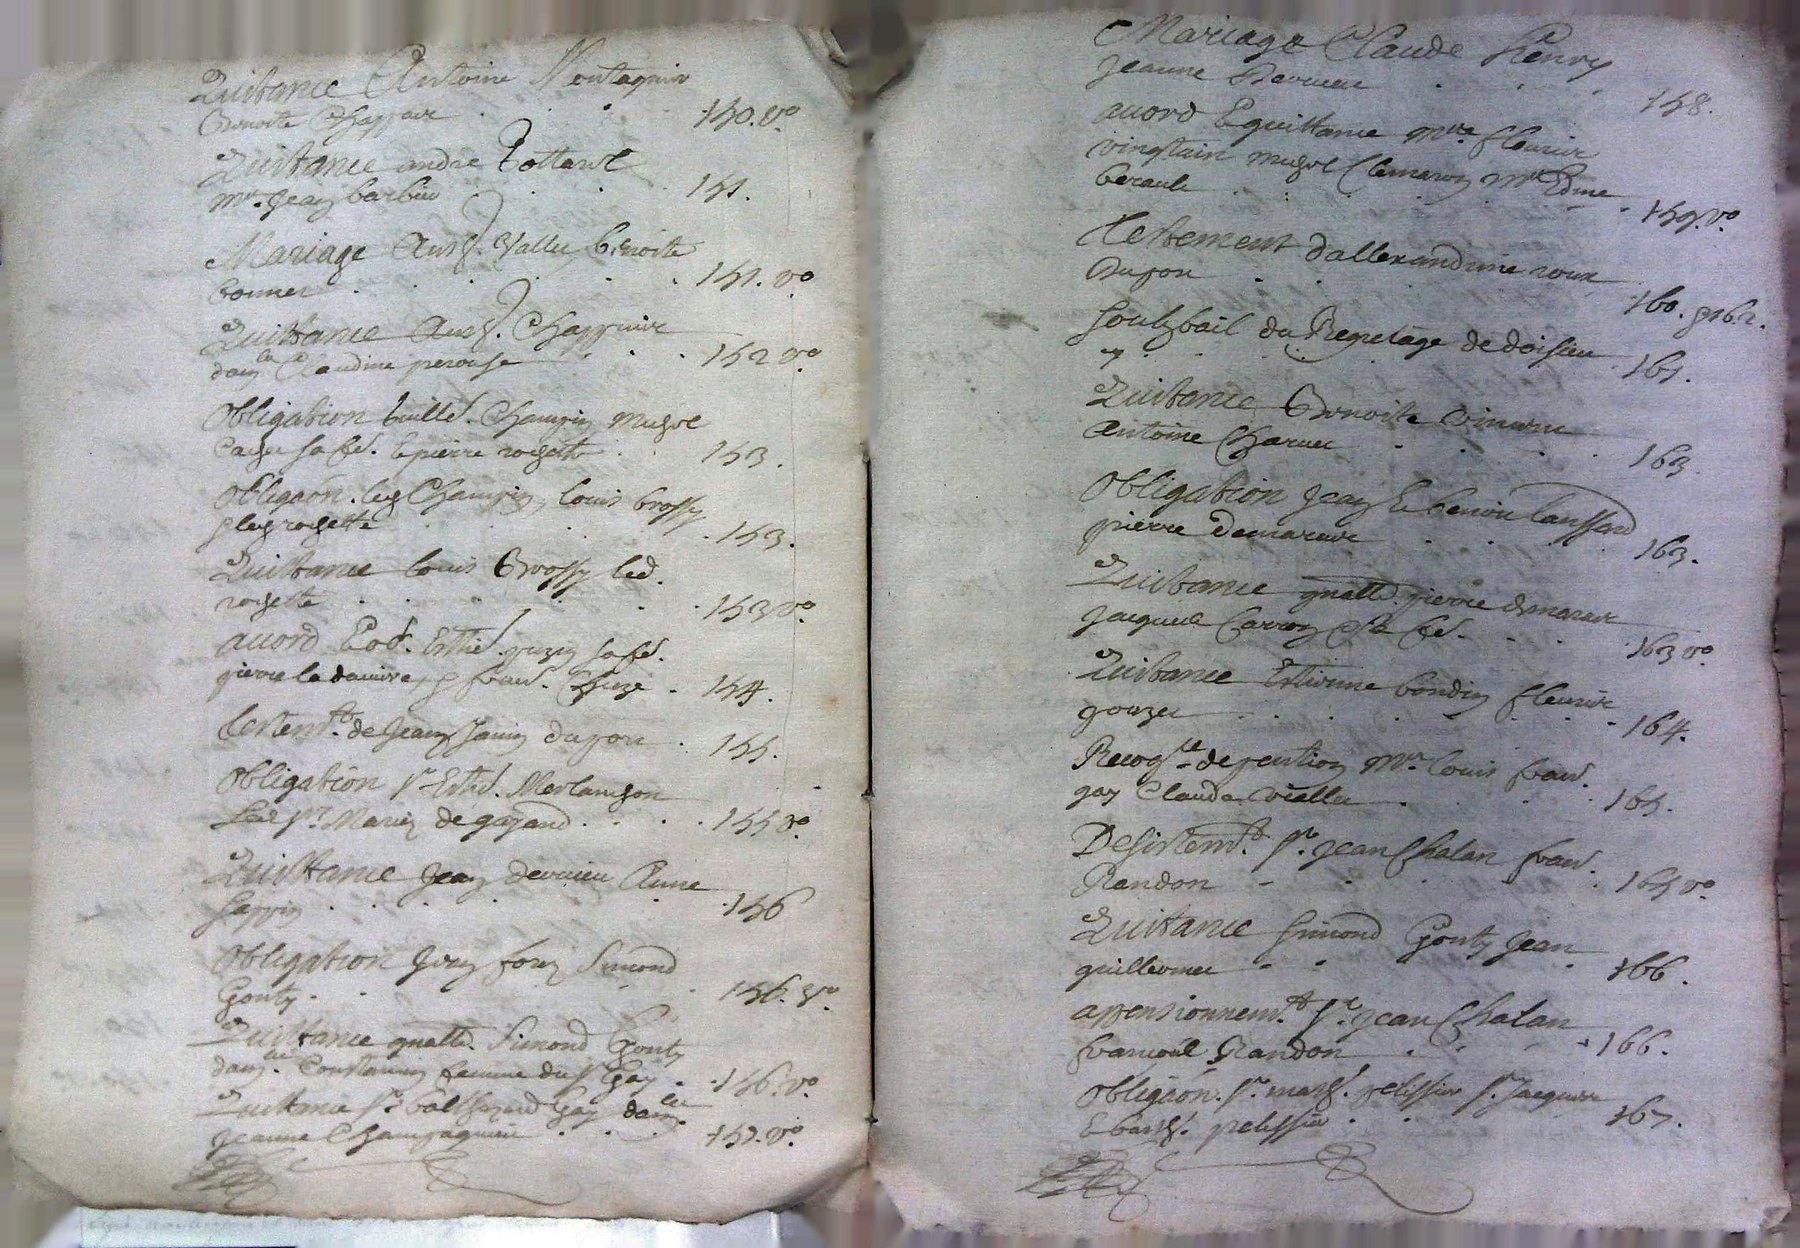 Quittance Antoine Montagnier
Benoite Chappuis 150. vo
Quittance andre
Mr. Jean barbier 151.
Mariage Anth. Vallu benoite
bonnet 151. vo
Quittance Anth. Chappuix
damlle Claudine perouse 152 vo
Obligation Guilld. Champin
sa fe. Epierre rosette 153.
Obligaon. led Champin, louis brossy
pled rosette 153.
Quittance louis Brossy led.
rosette 153 vo
accord Estie. sa fe.
pierre la p franc. 154.
Testemt. de Jean Janin dupon 155.
Obligation sr Estie. Merlanson
sr. de gayand 155 vo
Quittance Jean dervieu Anne
Sappin 156
Obligation Jean forez Simond
Gonty 156. vo
Quittance quall. Simond Gonty
damlle. Constantin femme du sr Gay 156. vo
Quittance sr. balthazard Gay damlle
Jeanne Champagnieu 157. vo
Mariage Claude henry
Jeanne Dervieu 158.
accord Equittance Mre fleurie
vingtain Mr Edme
berault 159. vo
Testement dallexandrine roux
Dupon 160. p 162.
Soubzbail du Regretage de doisieu
161.
Quittance Benoite
Antoine Charvet 163
Obligation Jean E benoit Caussard
pierre Demareux 163.
Quittance quall. pierre Demareux
Jacques Carron E sa fe. 163 vo
Quittance Estienne bondin fleurie
gouzet 164.
Recogce de pention Mr. louis franc.
gay Claude viallu 165.
Desistemt. sr. Jean Chalan franc.
Randon 165 vo
Quittance Simond Gonty Jean
guillermet 166.
appensionnemt. sr. Jean Chalan
francois Randon 166.
Obligaon. sr. math. pelissier sr. Jacques
E barth. pelissier 167.